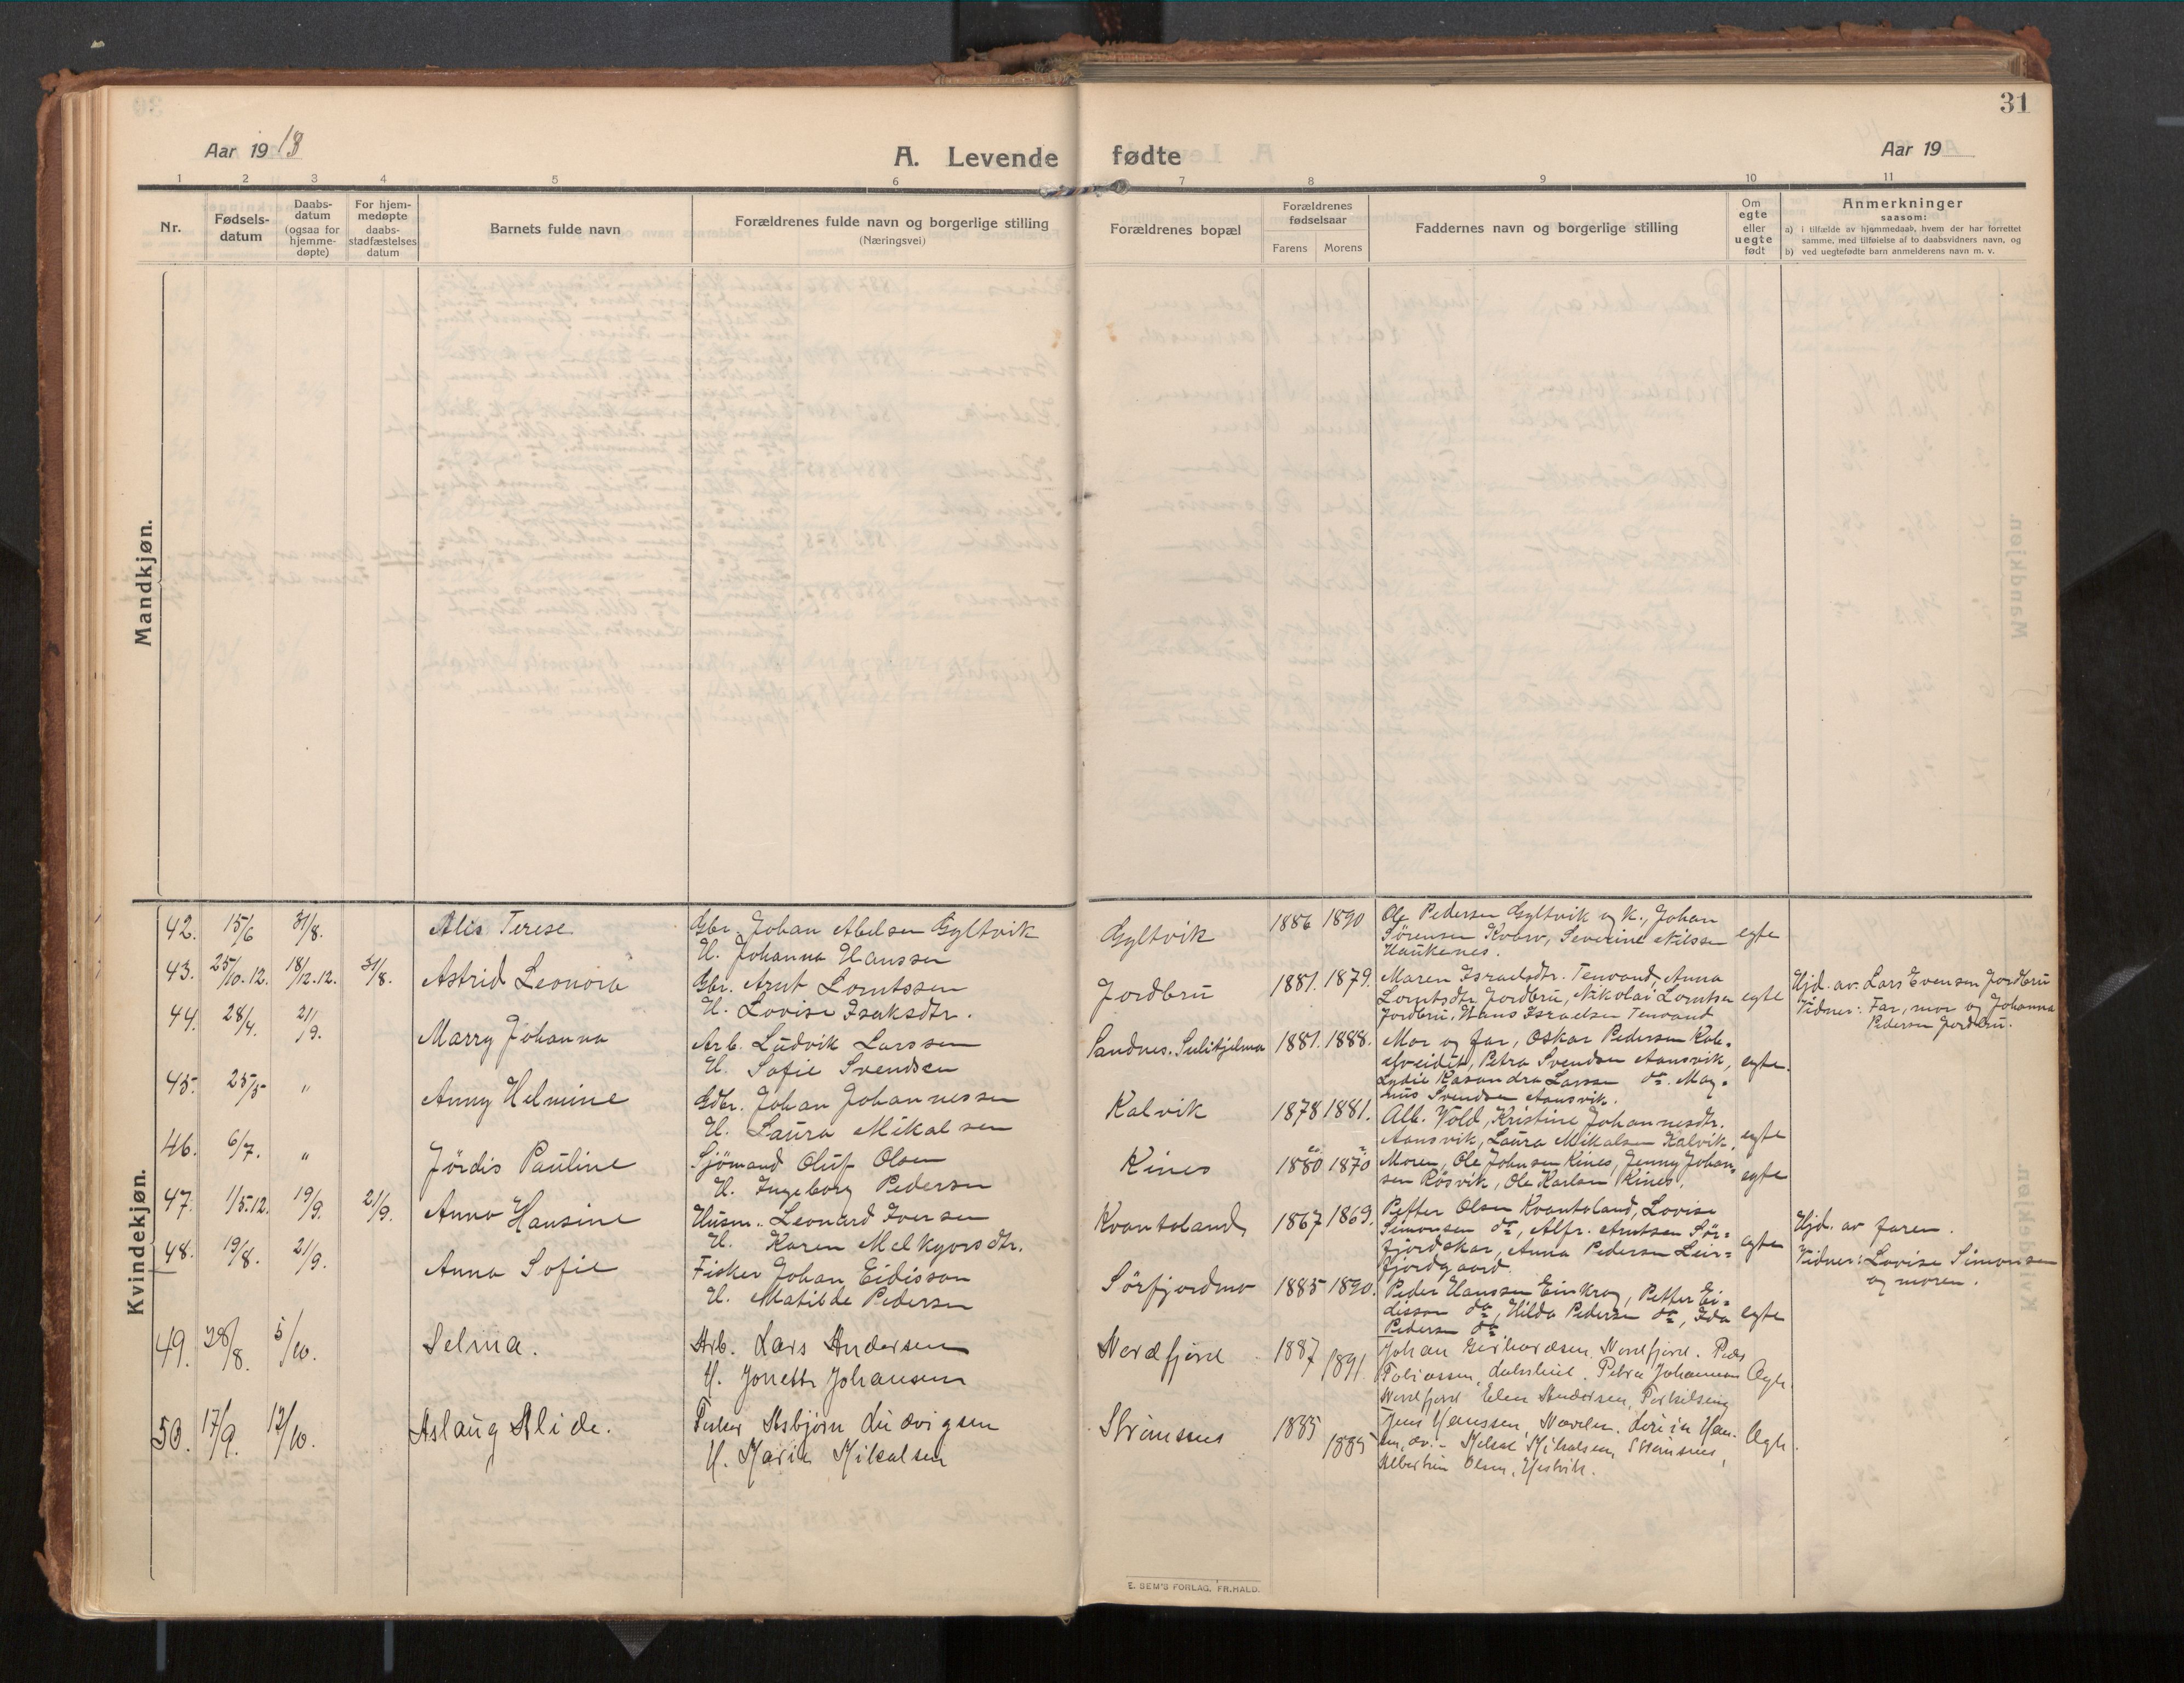 31
Aar 1913
A. Levende fødte
Aar 19
1 2 3 4 5 6 7 8 9 10 11
Nr.
Fødsels-
datum
Daabs-
datum
(ogsaa for
hjemme-
døpte)
For hjem-
medøpte
daabs-
stadfæstelses
datum
Barnets fulde navn
Forældrenes fulde navn og borgerlige stilling
(Næringsvei)
Forældrenes bopæl
Forældrenes
fødselsaar
Farens Morens
Faddernes navn og borgerlige stilling
Om
egte
eller
uegte
født
Anmerkninger
saasom:
a) i tilfælde av hjemmedaab, hvem der har forrettet
samme, med tilføielse af to daabsvidners navn, og
b) ved uegtefødte barn anmelderens navn m. v.
Mandkjøn.
Kvindekjøn.
42. 15/6 31/8. Alis Terese
Gbr. Johan Abelsen Gyltvik
H. Johanna Hanssen
Gyltvik 1886 1890
Ole Pedersen Gyltvik og K., Johan
Sörensen Kobro, Severine Nilssen
Haukenes.
egte
43. 25/10.12. 18/12.12. 31/8. Astrid Leonora
Gbr. Arnt Lorntssen
H. Lovise Isaksdtr.
Jordbru 1881. 1879.
Maren Israelsdtr. Tenvand, Anna
Lorntsdtr. Jordbru, Nikolai Lorntsen
Jordbru, Hans Israelsen Tenvand
egte
Hjd. av. Lars Evensen Jordbru
Vidner: Far, mor og Johanna
Pedersen Jordbru.
44. 28/4. 21/9. Marry Johanna
Arb. Ludvik Larssen
H. Sofie Svendsen
Sandnes. Sulitjelma 1881. 1888.
Mor og far, Oskar Pedersen
Petra Svendsen Aansvik,
Lydie Kasandra Larssen do. Mag-
nus Svendsen Aansvik.
egte.
45. 25/5 " Anny Helmine
Gbr. Johan Johannessen
H. Laura Mikalsen
Kalvik 1878 1881.
Alb. Vold, Kristine Johannesdtr.
Aansvik, Laura Mikalsen Kalvik.
egte
46. 6/7. " Jördis Pauline
Sjömand Oluf Olsen
H. Ingeborg Pedersen
Kines 1880 1870
Moren, Ole Johnsen Kines, Jenny Johan-
sen Rösvik, Ole Karlsen Kines.
egte
47. 1/5.12. 19/9. 21/9. Anna Hansine
Husm. Leonard Iversen
H. Karen Melkyorsdtr.
Kvantoland 1867 1869.
Petter Olsen Kvantoland, Lovise
Simonsen do, Alfr. Arntsen Sör-
fjordskar, Anna Pedersen Leir-
fjordgaard.
egte
Hjd. av faren.
Vidner: Lovise Simonsen
og moren.
48. 19/8. 21/9. Anna Sofie
Fisker Johan Eidisson
H. Matilde Pedersen
Sörfjordmo 1885 1890.
Peder Hanssen Einkrog, Petter Ei-
disson do, Hilda Pedersen do, Ida
Pedersen do
egte
49. 28/8. 5/10. Selma.
Arb. Lars Andersen
H. Jonette Johansen
Nordfjord 1887 1891.
Johan Gerhardsen, Nordfjord. Peder
Tobiassen, Petra Johannesen
Nordfjord Elen Andersen,
Egte.
50. 17/9. 12/10. Aslaug Alide.
Fisker Asbjørn Ludvigsen
H. Marie Mikalsen
Strømsnes 1885 1885
Jens Hanssen, Han-
sen, do. - Mikalsen, Strømsnes,
Albertine Olsen,
Egte.
E. SEM'S FORLAG, FR.HALD.